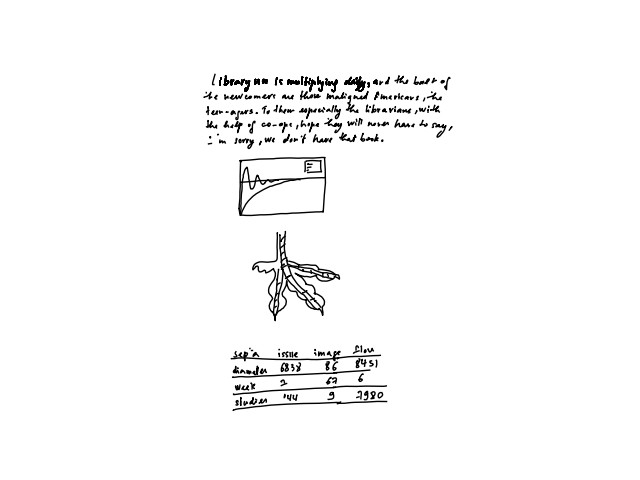 Library use is multiplying daily, and the bulk of
the newcomers are those maligned Americans, the
teen-agers. To them especially the librarians, with
the help of co-ops, hope they will never have to say,
I'm sorry, we don't have that book.
issue image flow
diameter 6838 86 8451
week 2 67 6
studies 9 7980